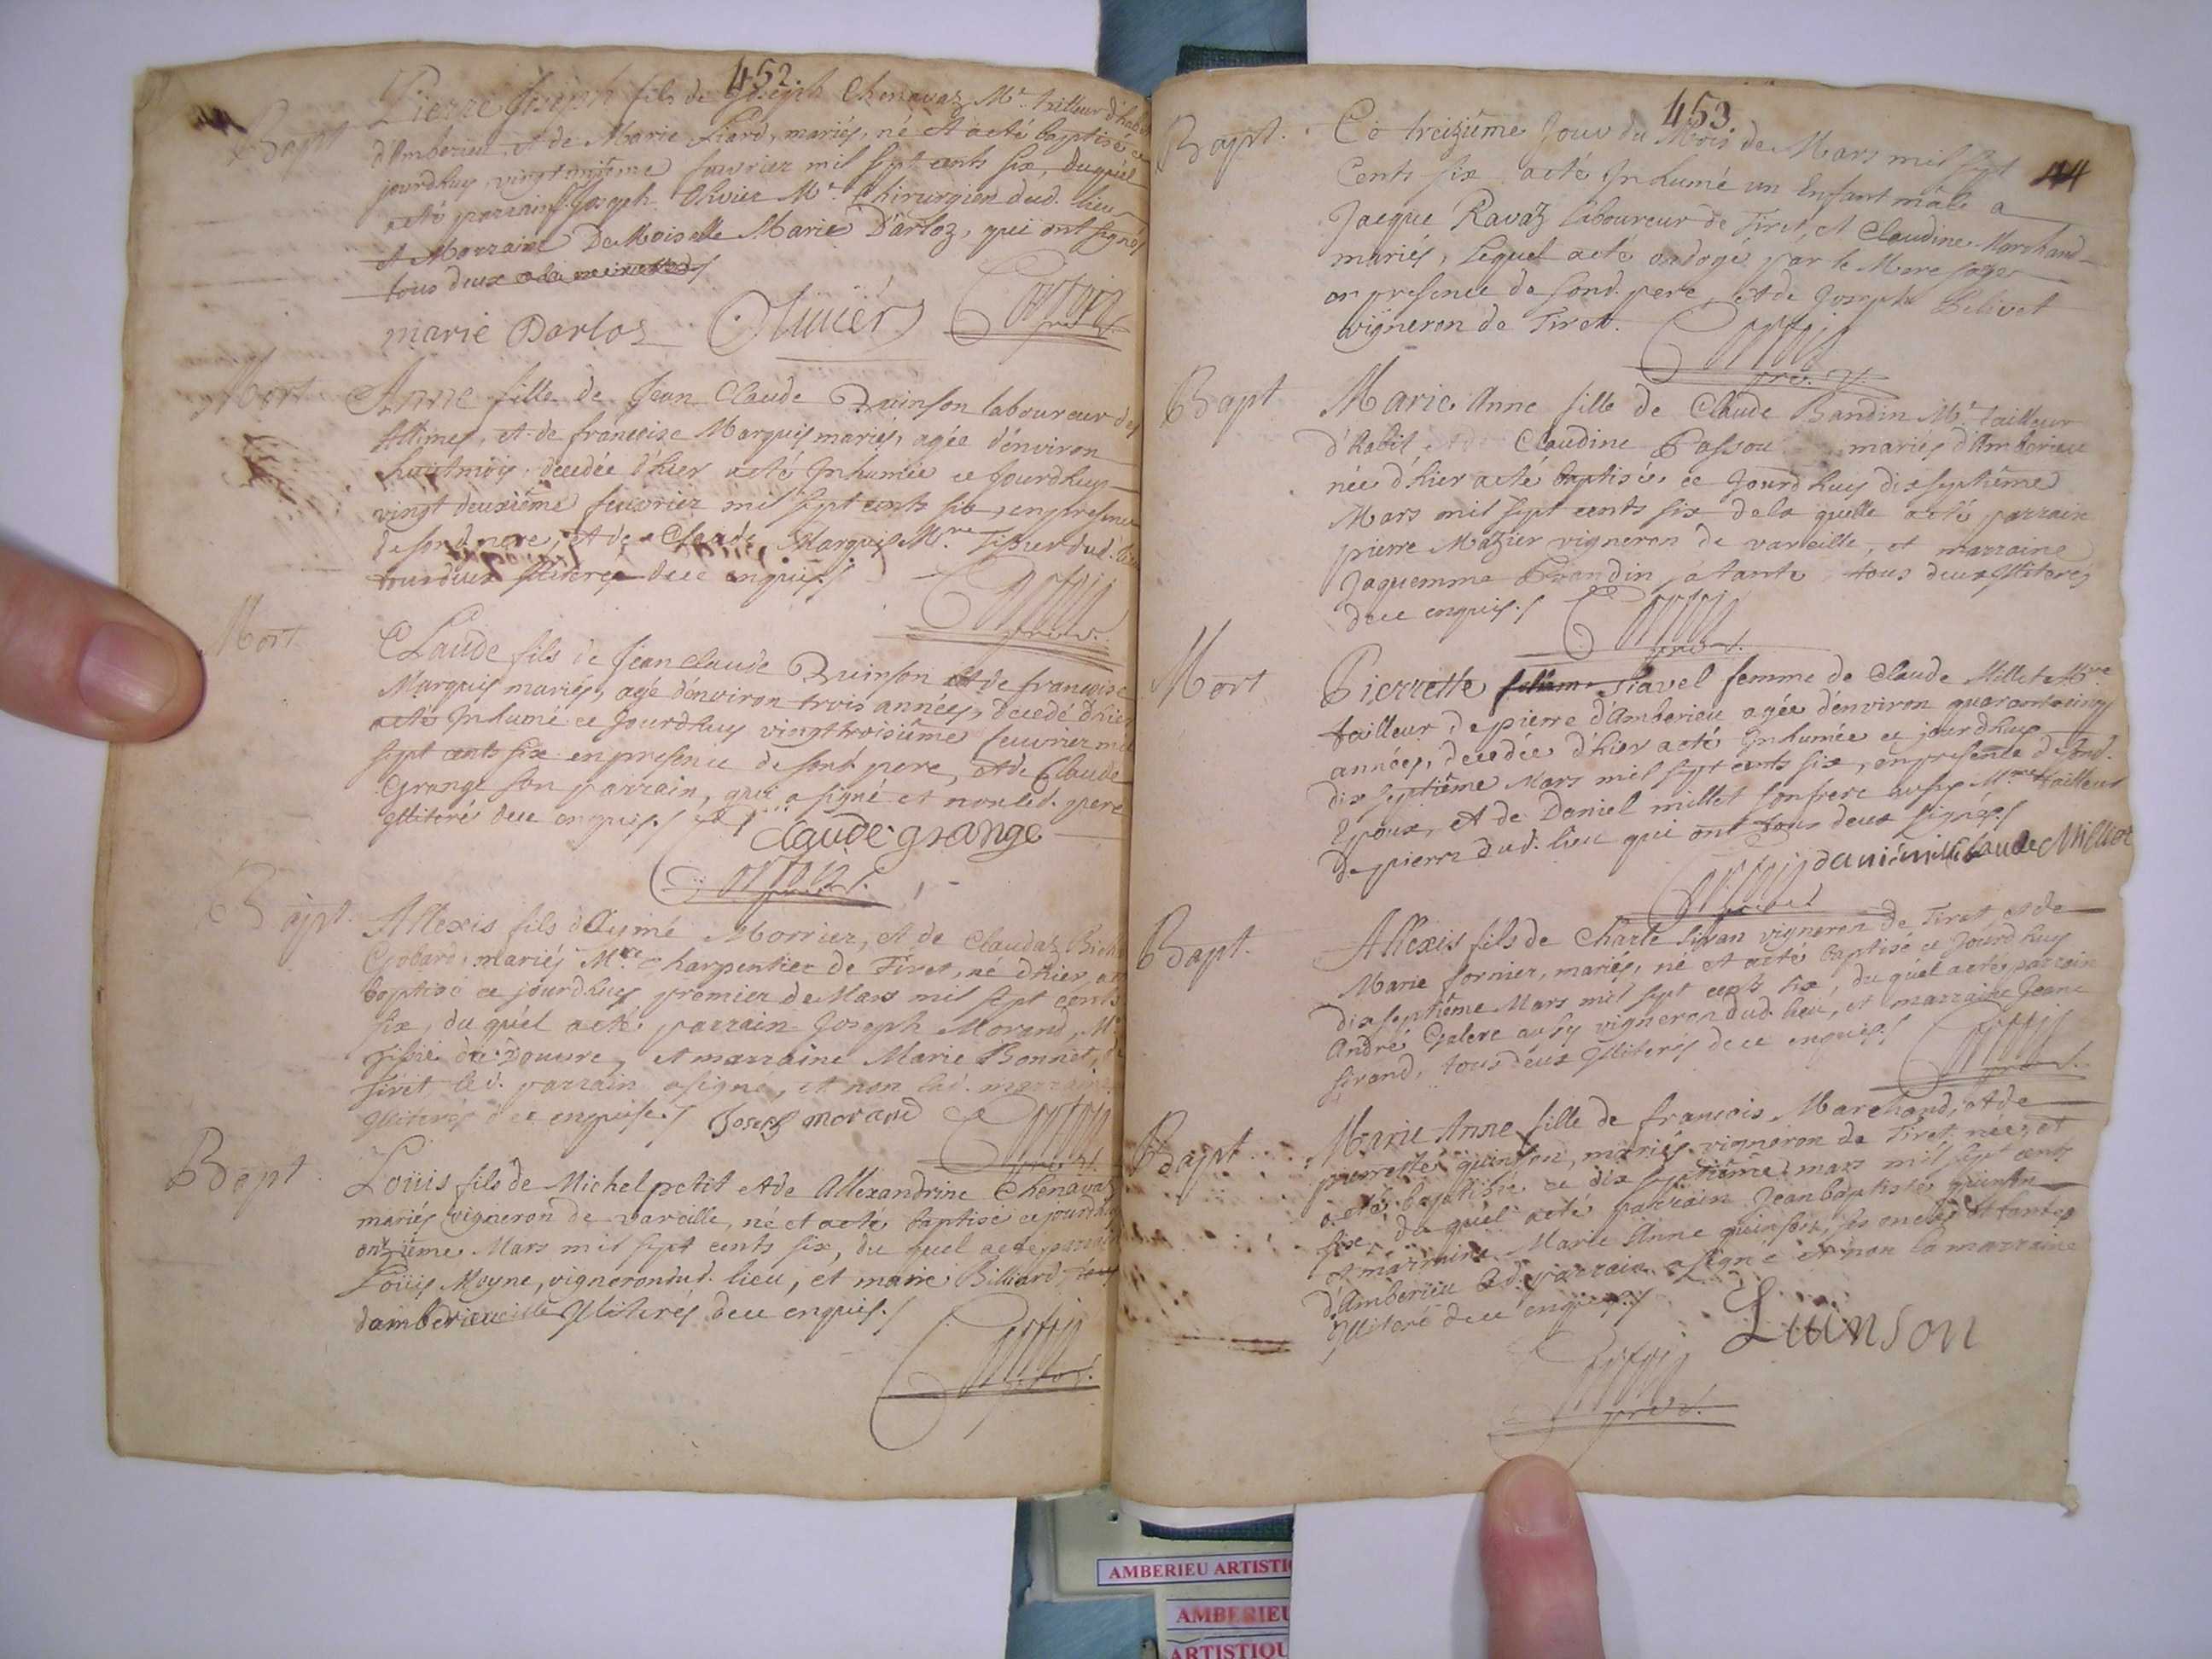 452.
Bapt
Pierre Joseph fils de Joseph Chenavaz, Mr. tailleur d'habit
d'Amberieu, et de Marie Liard, mariés, né et acté baptisé ce
jourdhuy vingt unième feuvrier mil sept cents six, duquel
acté parrain Joseph Olivier Mr. Chirurgien dud. lieu
et Marraine DeMoiselle Marie D'arloz, qui ont signés
tous deux
marie Darloz Olivier
Mort
Anne fille de Jean Claude Quinson laboureur des
Allimes, et de françoise Marquis mariés, agée d'énviron
huit mois decedée d'hier acté Inhumée ce Jourdhuy
vingt deuxième feuvrier mil sept cents six, en presence
de sond. pere, et de Claude Marquis Mre. Tissier dud. lieu
tous deux Illiterés de ce enquis./
Mort
Claude fils de Jean Claude Quinson et de françoise
Marquis mariés, agé d'énviron trois années, decedé d'hier
acté Inhumé ce Jourdhuy vingttroisième feuvrier mil
sept cents six en presence de sond. pere, et de Claude
Grange son parrain, qui a signé et non led. pere
Illiteré de ce enquis./
Claude grange
Bapt.
Allexis fils d'Aymé Morrier, et de Claudaz
Gobard, mariés Mre Charpentier de Tiret, né d'hier,
baptisé ce jourdhuy premier de Mars mil sept cents
six, du quel acté parrain Joseph Morand, Mr
et marraine Marie Bonnet, de
Tiret led. parrain a signé, et non lad. marraine
Illiterés de ce enquise./ Joseph morand
Bapt.
Loüis fils de Michel petit et de Allexandrine Chenavaz
mariés vigneron de vareille, né et acté baptisé ce jourdhuy
onzième Mars mil sept cents six, du quel acté parrain
Loüis Moyne, vigneron dud. lieu, et marie Billiard,
d'amberieu Illiterés de ce enquis./
453.
44
Bapt.
Ce treizième Jour du Mois de Mars mil sept
Cents six acté Inhumé un Enfant mâle a
Jacque Ravaz laboureur de Tiret, et Claudine Marchand
mariés, Lequel acté ondoyé par le Mere sage
en presence de sond. pere, et de Joseph Belivet
vigneron de Tiret.
Bapt
Marie Anne fille de Claude Bandin Mr tailleur
d'habit, et de Claudine Passou mariés d'Amberieu
née d'hier acté baptisée ce Jourdhuy dixseptième
Mars mil sept cents six de la quelle acté parrain
pierre Mazier vigneron de vareille, et marraine
Jaquemme sa tante, tous deux Illiterés
de ce enquis./
Mort
Pierrette Ravel femme de Claude Millet Mre
tailleur de pierre d'Amberieu agée d'énviron quarantecinq
années, decedée d'hier acté Inhumée ce jourdhuy
dix septième Mars mil sept cents six, en presence de sond.
Epoux, et de Daniel millet son frere aussy Mre tailleur
de pierre dud. lieu qui ont tous deux signés./
Claude Millet
Bapt.
Allexis fils de Charle Siran vigneron de Tiret, et de
Marie fornier, mariés, né et acté baptisé ce Jourdhuy
dixseptième Mars mil sept cents six, du quel acté parrain
André Galere aussy vigneron dud. lieu, et marraine Jeane
Sirand, tous deux Illiterés de ce enquis./
Bapt
Marie Anne fille de francois Marchand, et de
pierrette quinson, mariés vigneron de Tiret, née, et
acté baptisée ce dix septième mars mil sept cents
six, du quel acté parrain Jean baptiste quinson
et marraine Marie Anne quinson, ses oncle et tante
d'Amberieu led. parrain a signé et non la marraine
Illiteré de ce enquis./
Quinson
AMBERIEU ARTISTI
AMBERIEU
ARTISTIQU